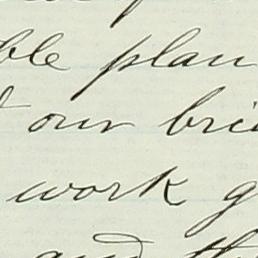 ble plan
our bri
work g
and th